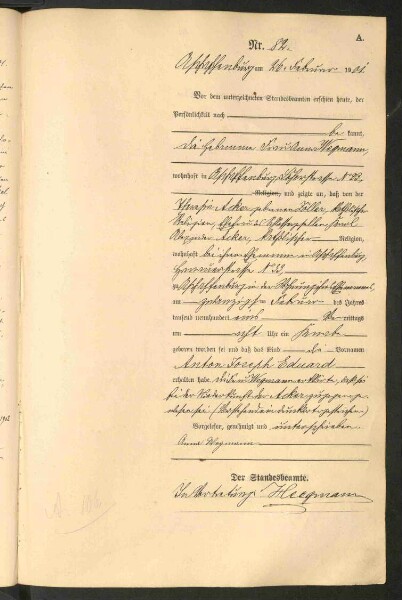 A.
Nr. 82.
Aschaffenburg am 26. Februar 1901.
Vor dem unterzeichneten Standesbeamten erschien heute, der
Persönlichkeit nach
be kannt,
die Hebamme Frau Anna Wegmann,
wohnhaft in Aschaffenburg, N 22,
Religion, und zeigte an, daß von der
Acker geborenen Söller, katholischer
Religion, Ehefrau des
Acker, katholischer Religion,
wohnhaft bei ihrem Ehemann in Aschaffenburg,
N 33,
zu Aschaffenburg in der Wohnung ihres Ehemannes,
am Februar des Jahres
tausend neunhundert eins Vormittags
um acht Uhr ein Knabe
geboren worden sei und daß das Kind die Vornamen
Anton Joseph Eduard
erhalten habe. Die Frau Wegmann erklärte, daß sie
bei der Niederkunft der Acker zugegen ge-
wesen sei.
Vorgelesen, genehmigt und unterschrieben
Anna Wegmann
Der Standesbeamte.
In Vertretung: Heegmann